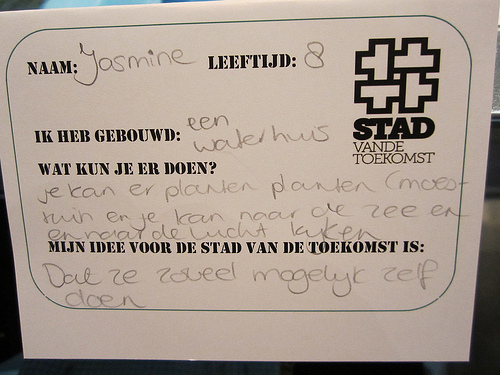 NAAM: Jasmine LEEFTIJD: 8
IK HEB GEBOUWD: een
waterhuis
STAD
VANDE
TOEKOMST
WAT KUN JE ER DOEN?
je kan er planten planten (moes-
tuin en je kan naar de zee en
en naar de lucht kijken
MIJN IDEE VOOR DE STAD VAN DE TOEKOMST IS:
Dat ze zoveel mogelijk zelf
doen